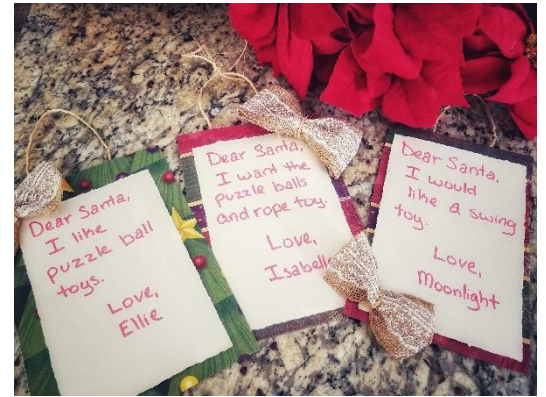 Dear Santa,
I like
puzzle ball
toys.
Love,
Ellie
Dear Santa,
I want the
puzzle balls
and rope toy.
Love,
Isabelle
Dear Santa,
I would
like a swing
toy.
Love,
Moonlight